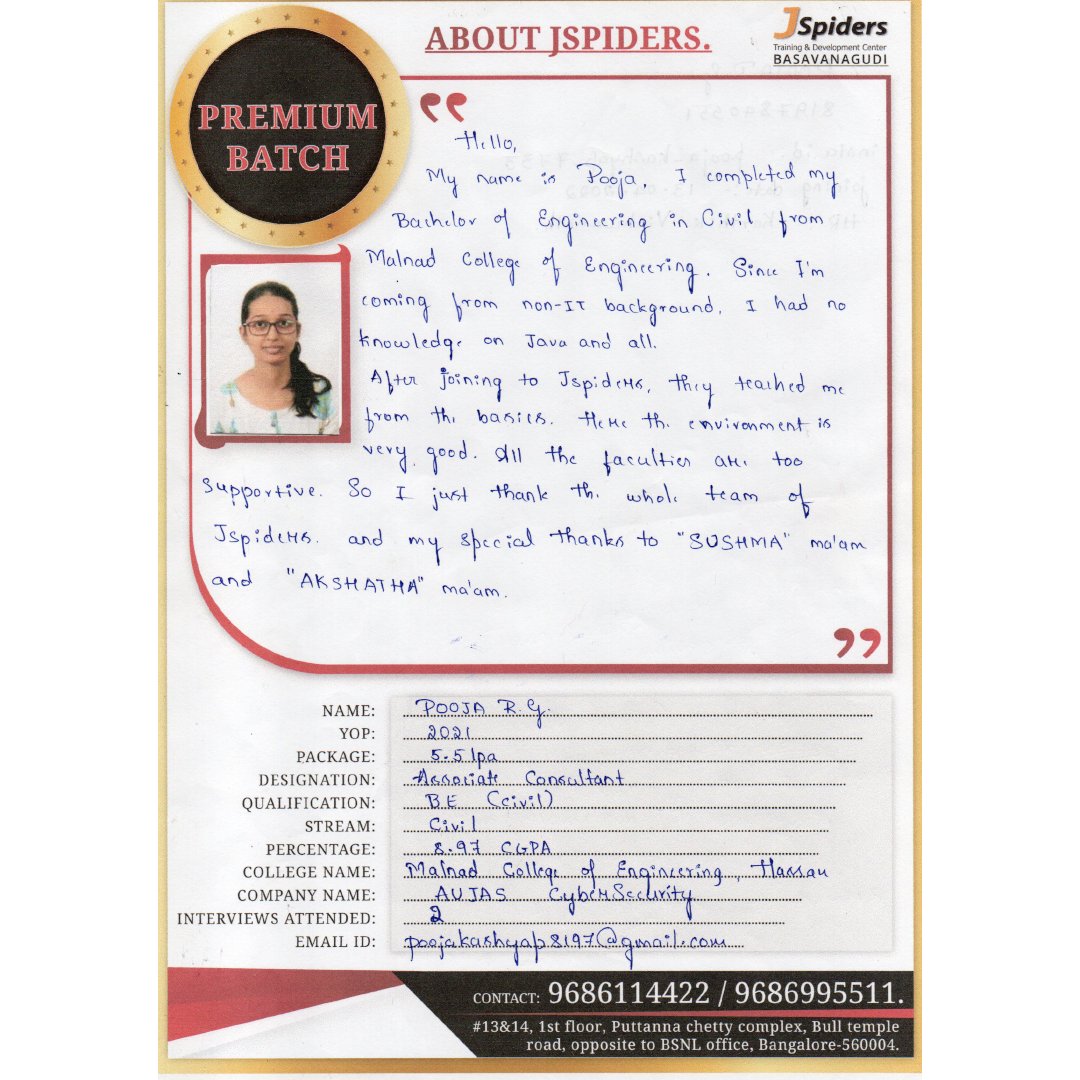 ABOUT JSPIDERS.
JSpiders
Training & Development Center
BASAVANAGUDI
PREMIUM
BATCH
Hello,
My name is Pooja, I completed my
Bachelor of Engineering in Civil from
Malnad College of Engineering. Since I'm
coming from non-IT background, I had no
knowledge on Java and all.
After joining to Jspiders, they teached me
from the basics. Here the environment is
very good. All the faculties are too
supportive. So I just thank the whole team of
Jspiders. and my special thanks to "SUSHMA" ma'am
and "AKSHATHA" ma'am.
NAME: POOJA R.G.
YOP: 2021
PACKAGE: 5.5 lpa
DESIGNATION: Associate Consultant
QUALIFICATION: BE (civil)
STREAM: Civil
PERCENTAGE: 8.97 CGPA
COLLEGE NAME: Malnad College of Engineering, Hassan
COMPANY NAME: AUJAS CyberSecurity
INTERVIEWS ATTENDED: 2
EMAIL ID: poojakashyap8197@gmail.com
CONTACT: 9686114422 / 9686995511.
#13&14, 1st floor, Puttanna chetty complex, Bull temple
road, opposite to BSNL office, Bangalore-560004.